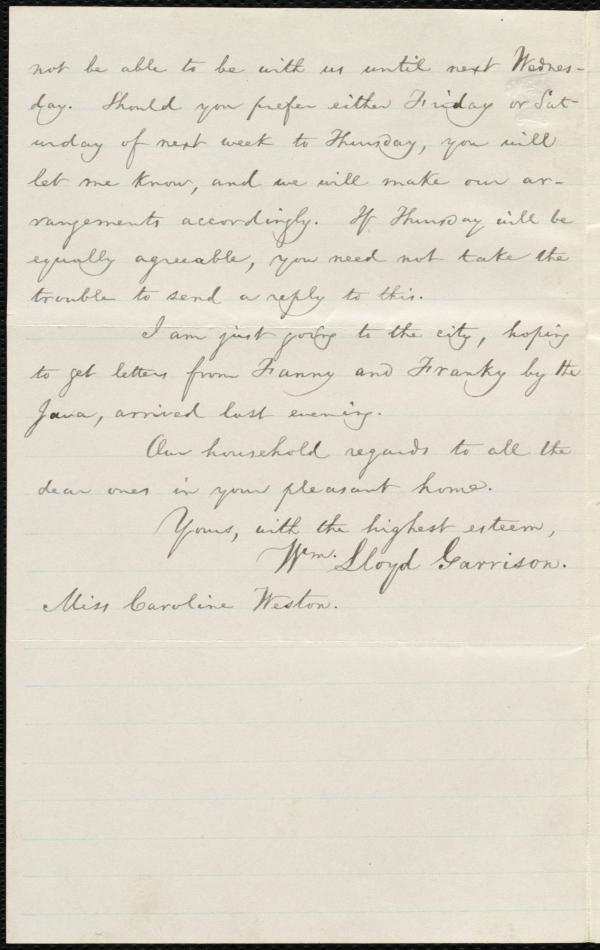 not be able to be with us until next Wednes-
day. Should you prefer either Friday or Sat-
urday of next week to Thursday, you will
let me know, and we will make our ar-
rangements accordingly. If Thursday will be
equally agreeable, you need not take the
trouble to send a reply to this.
I am just going to the city, hoping
to get letters from Fanny and Franky by the
Java, arrived last evening.
Our household regards to all the
dear ones in your pleasant home.
Yours, with the highest esteem,
Wm. Lloyd Garrison.
Miss Caroline Weston.